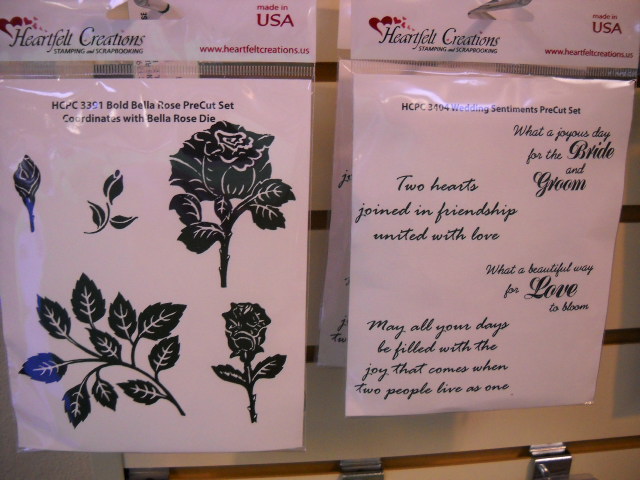 Heartfelt Creations
STAMPING and SCRAPBOOKING
made in
USA
www.heartfeltcreations.us
HCPC 3391 Bold Bella Rose PreCut Set
Coordinates with Bella Rose Die
Heartfelt Creations
STAMPING and SCRAPBOOKING
made in
USA
www.heartfeltcreations.us
HCPC 3404 Wedding Sentiments PreCut Set
What a joyous day
for the Bride
and
Groom
Two hearts
joined in friendship
united with love
What a beautiful way
for Love
to bloom
May all your days
be filled with the
joy that comes when
two people live as one